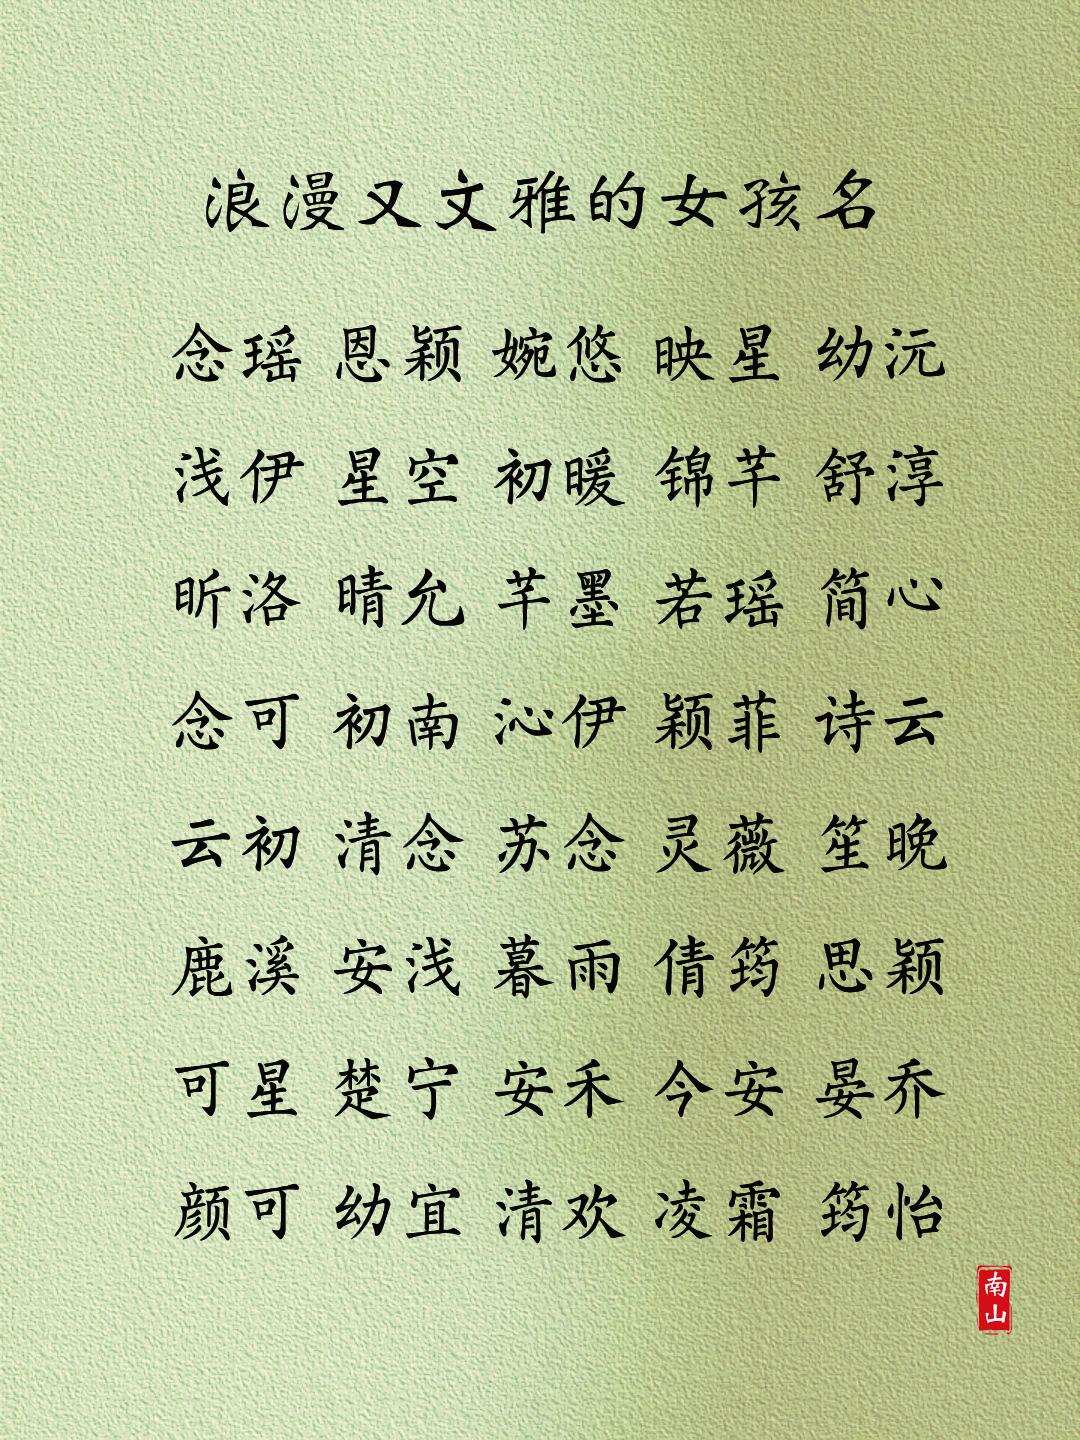 浪漫又文雅的女孩名
念瑶 恩颖 婉悠 映星 幼沅
浅伊 星空 初暖 锦芊 舒淳
昕洛 晴允 芊墨 若瑶 简心
念可 初南 沁伊 颖菲 诗云
云初 清念 苏念 灵薇 笙晚
鹿溪 安浅 暮雨 倩筠 思颖
可星 楚宁 安禾 今安 晏乔
颜可 幼宜 清欢 凌霜 筠怡
南山